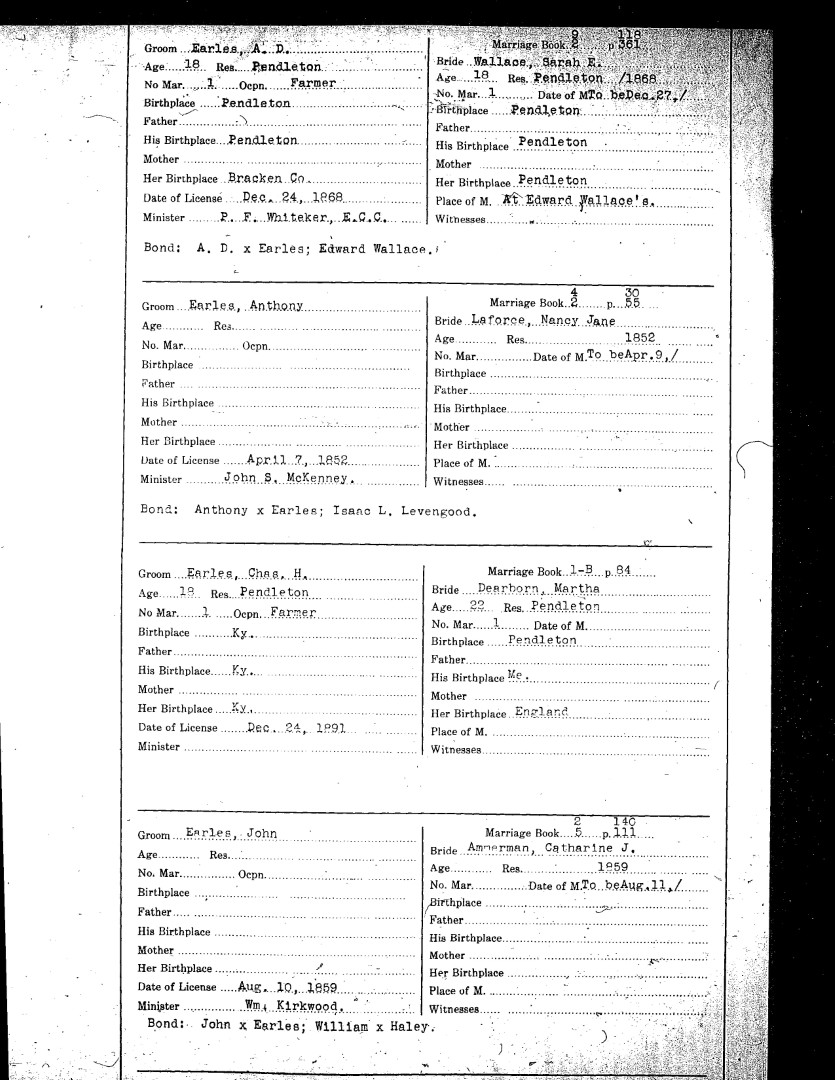 9 118
Groom Earles, A. D.
Marriage Book 2 p 361
Age 18 Res. Pendleton
Bride Wallace, Sarah E.
No Mar. 1 Ocpn. Farmer
Age 18 Res. Pendleton /1868
Birthplace Pendleton
No. Mar. 1 Date of M To be Dec. 27,/
Father
Birthplace Pendleton
His Birthplace Pendleton
Father
Mother
His Birthplace Pendleton
Her Birthplace Bracken Co.
Mother
Date of License Dec. 24, 1868
Her Birthplace Pendleton
Minister P. F. Whitaker, E.C.C.
Place of M. At Edward Wallace's.
Witnesses
Bond: A. D. x Earles; Edward Wallace.
4 30
Groom Earles, Anthony
Marriage Book 2 p. 55
Age Res.
Bride Laforce, Nancy Jane
No. Mar. Ocpn.
Age Res. 1852
Birthplace
No. Mar. Date of M. To be Apr. 9,/
Father
Birthplace
His Birthplace
Father
Mother
His Birthplace
Her Birthplace
Mother
Date of License April 7, 1852
Her Birthplace
Minister John S. McKenney.
Place of M.
Witnesses
Bond: Anthony x Earles; Isaac L. Levengood.
Groom Earles, Chas. H.
Marriage Book 1-B p. 84
Age Res. Pendleton
Bride Dearborn, Martha
No Mar. 1 Ocpn. Farmer
Age 22 Res. Pendleton
Birthplace Ky.
No. Mar. 1 Date of M.
Father
Birthplace Pendleton
His Birthplace Ky.
Father
Mother
His Birthplace Me.
Her Birthplace Ky.
Mother
Date of License Dec. 24, 1891
Her Birthplace England
Minister
Place of M.
Witnesses
2 140
Groom Earles, John
Marriage Book 5 p. 111
Age Res.
Bride Ammerman, Catharine J.
No. Mar. Ocpn.
Age Res. 1859
Birthplace
No. Mar. Date of M. To be Aug. 11,/
Father
Birthplace
His Birthplace
Father
Mother
His Birthplace
Her Birthplace
Mother
Date of License Aug. 10, 1859
Her Birthplace
Minister Wm. Kirkwood.
Place of M.
Witnesses
Bond: John x Earles; William x Haley.